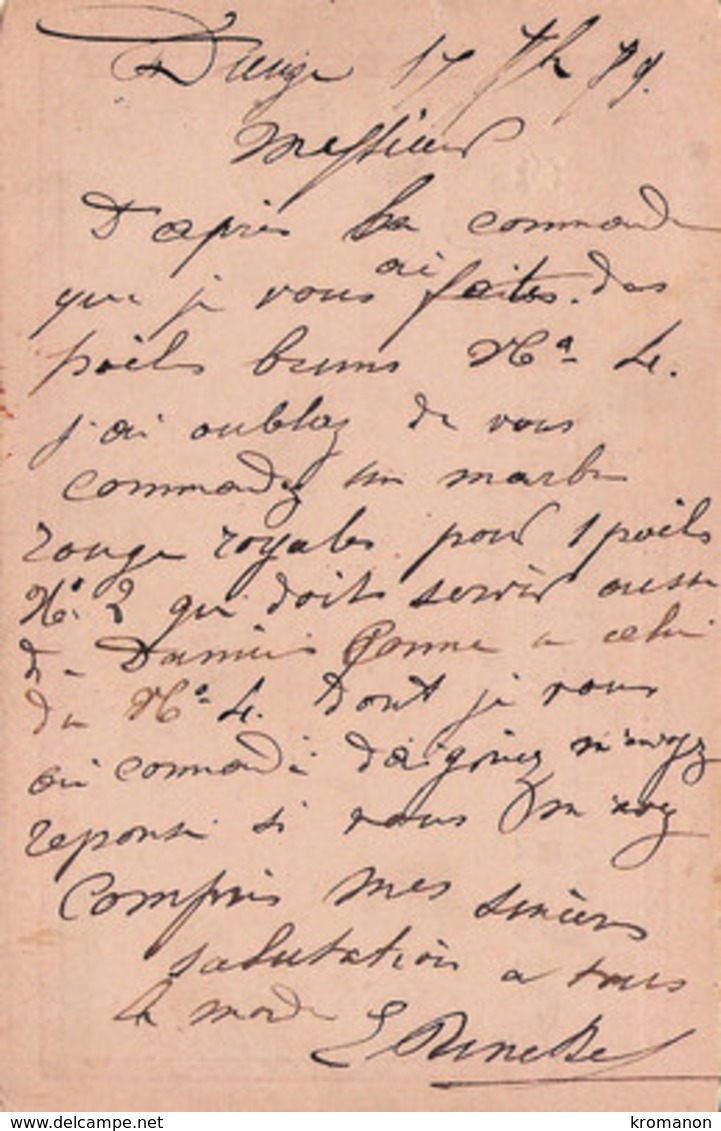 17 79.
Messieurs
D'après la commande
que je vous ai faites. des
poêls bruns No 4.
j'ai oubliez de vous
commandez un marbre
rouge royales pour 1 poêls
No. 2 qui doit servir aussi
de a celui
du No. 4. Dont je vous
ai commandé daigniez m'envoyez
reponse si vous m'avez
compris mes sinceres
salutation a tous
le monde
www.delcampe.net
kromanon